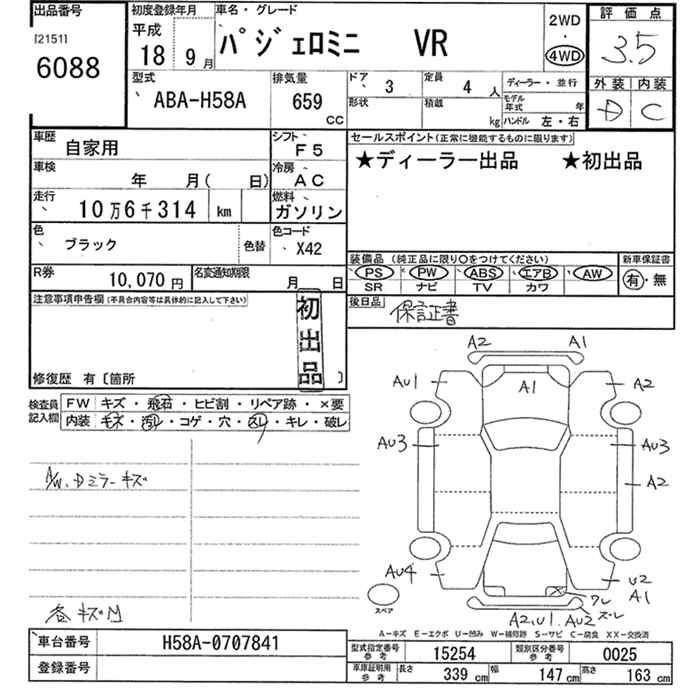 出品番号
[2151]
6088
初度登録年月
平成
18年 9月
車名・グレード
パジェロミニ VR
2WD
・
4WD
評価点
3.5
外装 内装
D C
型式
ABA-H58A
排気量
659
CC
ドア
3
定員
4人
形状
積載
kg
ディーラー・並行
モデル年式 年
ハンドル 左・右
車歴
自家用
シフト
F5
車検
年 月( 日)
冷房
AC
走行
10万6千314 km
燃料
ガソリン
色
ブラック
色替
色コード
X42
R券
10,070円
名変通知期限
月 日
セールスポイント(正常に機能するものに限ります)
★ディーラー出品 ★初出品
装備品(純正品に限り〇をつけてください)
PS PW ABS エアB AW
SR ナビ TV カワ
新車保証書
有・無
後日品
保証書
注意事項申告欄(不具合内容等は具体的に記入して下さい)
初出品
修復歴 有〔箇所 〕
検査員記入欄
FW キズ・飛石・ヒビ割・リペア跡・×要
内装 キズ・汚レ・コゲ・穴・スレ・キレ・破レ
A/W、Dミラーキズ
A2 A1
AU1 A1 A2
AU3 AU3
A2
AU4 U2
A1
ワレ
スペア
A2、U1、AU2 ズレ
A-キズ E-エクボ U-凹み W-補修跡 S-サビ C-腐食 XX-交換済
車台番号
H58A-0707841
登録番号
型式指定番号 参考
15254
類別区分番号 参考
0025
車庫証明用 参考
長さ 339 cm
幅 147 cm
高さ 163 cm